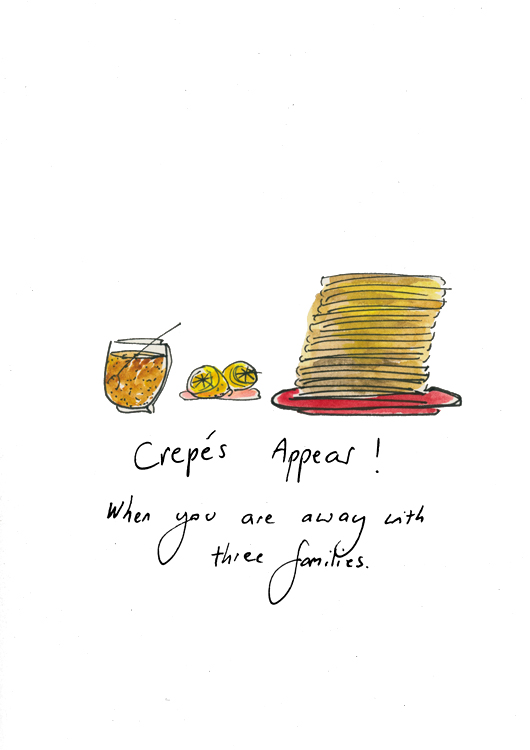 Crepés Appear!
When you are away with
three families.